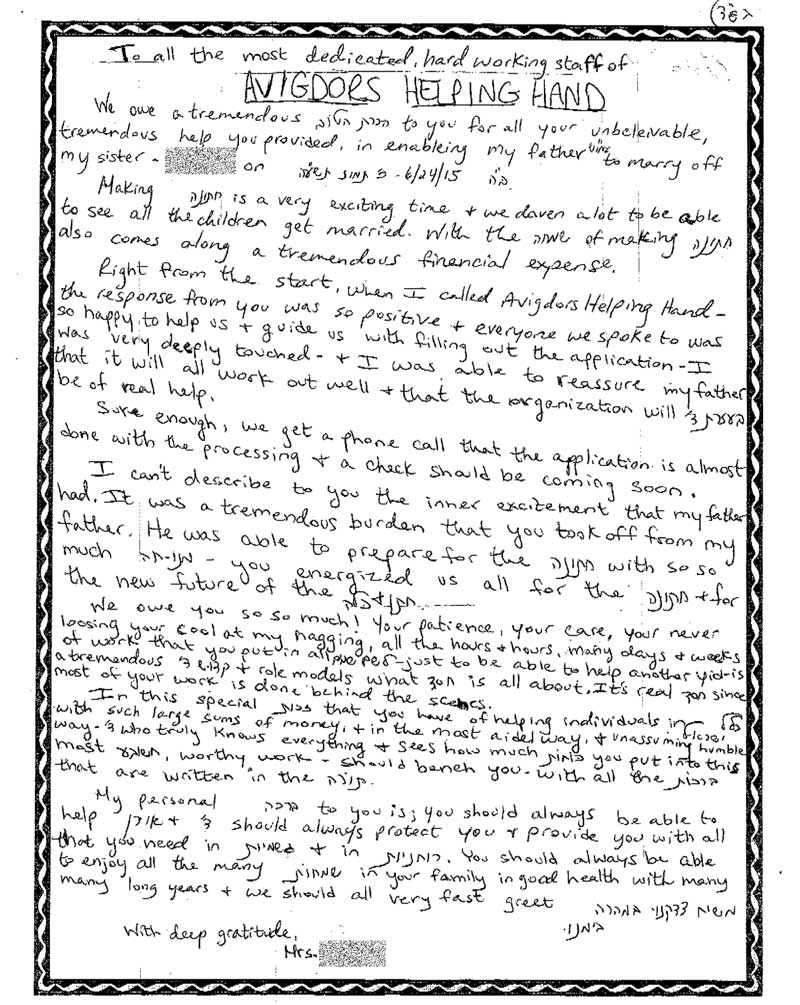 To all the most dedicated, hard working staff of
AVIGDORS HELPING HAND
We owe a tremendous הכרת הטוב to you for all your unbeleivable,
tremendous help you provided, in enableing my father to marry off
my sister - on ג' תמוז תשע"ה - 6/24/15
Making חתונה is a very exciting time + we daven a lot to be able
to see all the children get married. With the שמחה of making חתונה
also comes along a tremendous financial expense.
Right from the start, when I called Avigdors Helping Hand -
the response from you was so positive + everyone we spoke to was
so happy to help us + guide us with filling out the application - I
was very deeply touched - + I was able to reassure my father
that it will all work out well + that the organization will בעזרת ד'
be of real help.
Sure enough, we get a phone call that the application is almost
done with the processing + a check should be coming soon.
I can't describe to you the inner excitement that my father
had. It was a tremendous burden that you took off from my
father. He was able to prepare for the חתונה with so so
much - you energized us all for the חתונה + for
the new future of the
We owe you so so much! Your patience, your care, your never
loosing your cool at my nagging, all the hours + hours, many days + weeks
of work that you put in all just to be able to help another yid - is
a tremendous + role models what חסד is all about. It's real חסד since
most of your work is done behind the scenes.
In this special זכות that you have of helping individuals in כלל
with such large sums of money, + in the most aidel way, + unassuming humble ישראל
way - ד' who truly knows everything + sees how much כוחות you put into this
most worthy work - should bench you - with all the ברכות
that are written in the תורה.
My personal ברכה to you is; you should always be able to
help ד' should always protect you + provide you with all
that you need in גשמיות + in רוחניות. You should always be able
to enjoy all the many שמחות in your family in good health with many
many long years + we should all very fast greet משיח צדקנו במהרה
בימנו
With deep gratitude,
Mrs.